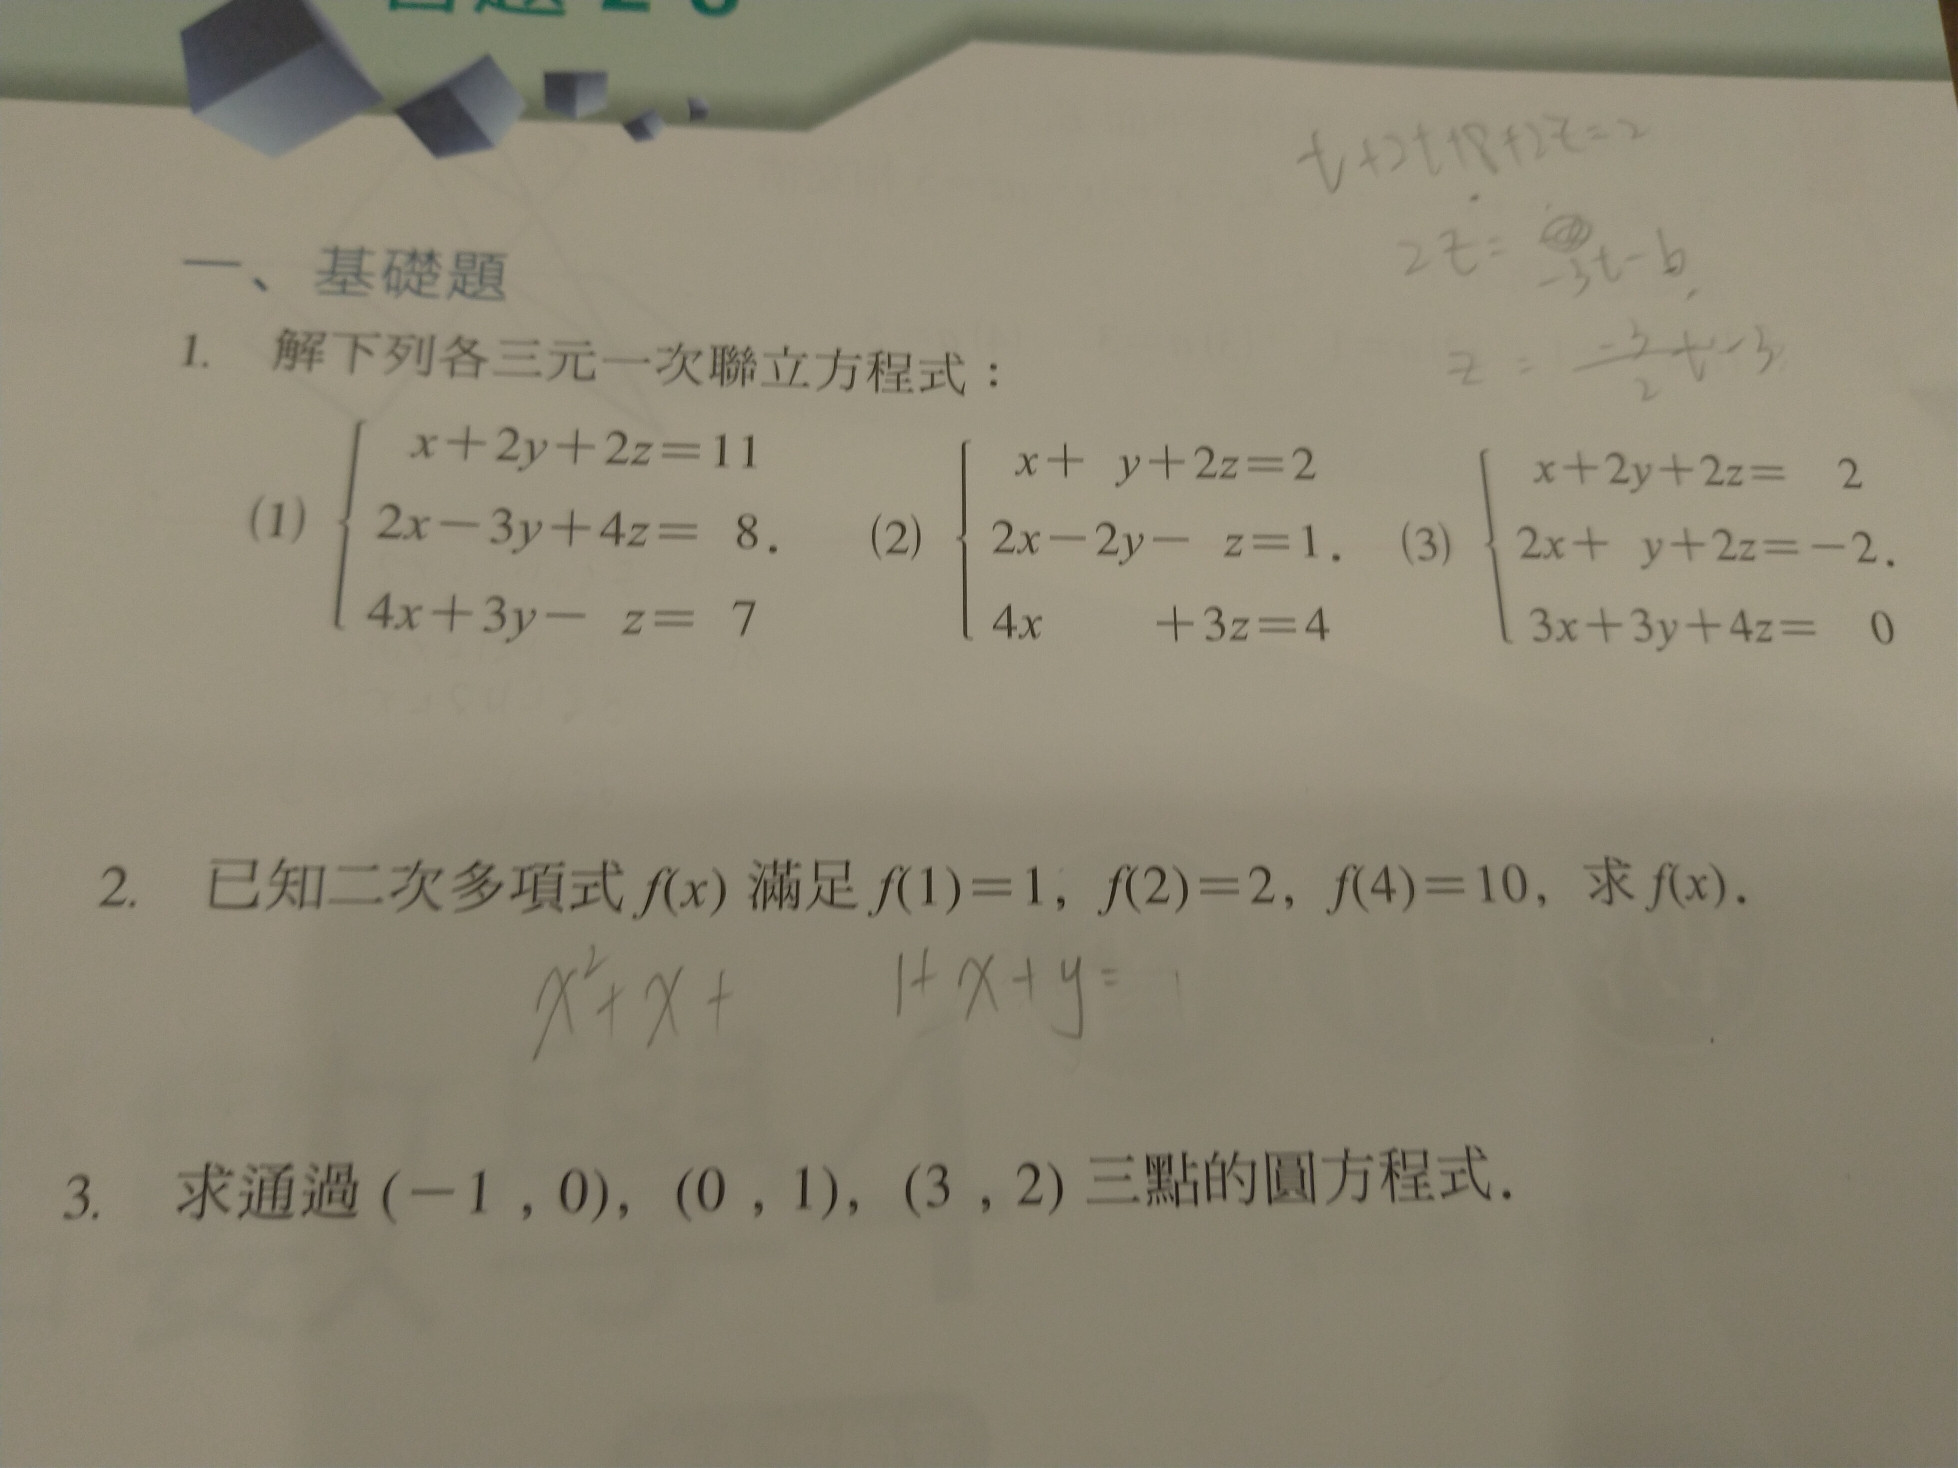 習題 2-3
一、基礎題
1. 解下列各三元一次聯立方程式：
(1) x+2y+2z=11
2x-3y+4z= 8.
4x+3y- z= 7
(2) x+ y+2z=2
2x-2y- z=1.
4x +3z=4
(3) x+2y+2z= 2
2x+ y+2z=-2.
3x+3y+4z= 0
2z= -3t-6
z = -3/2 t-3
2. 已知二次多項式 f(x) 滿足 f(1)=1, f(2)=2, f(4)=10, 求 f(x).
x²+x+ 1+x+y=
3. 求通過 (-1 , 0), (0 , 1), (3 , 2) 三點的圓方程式.